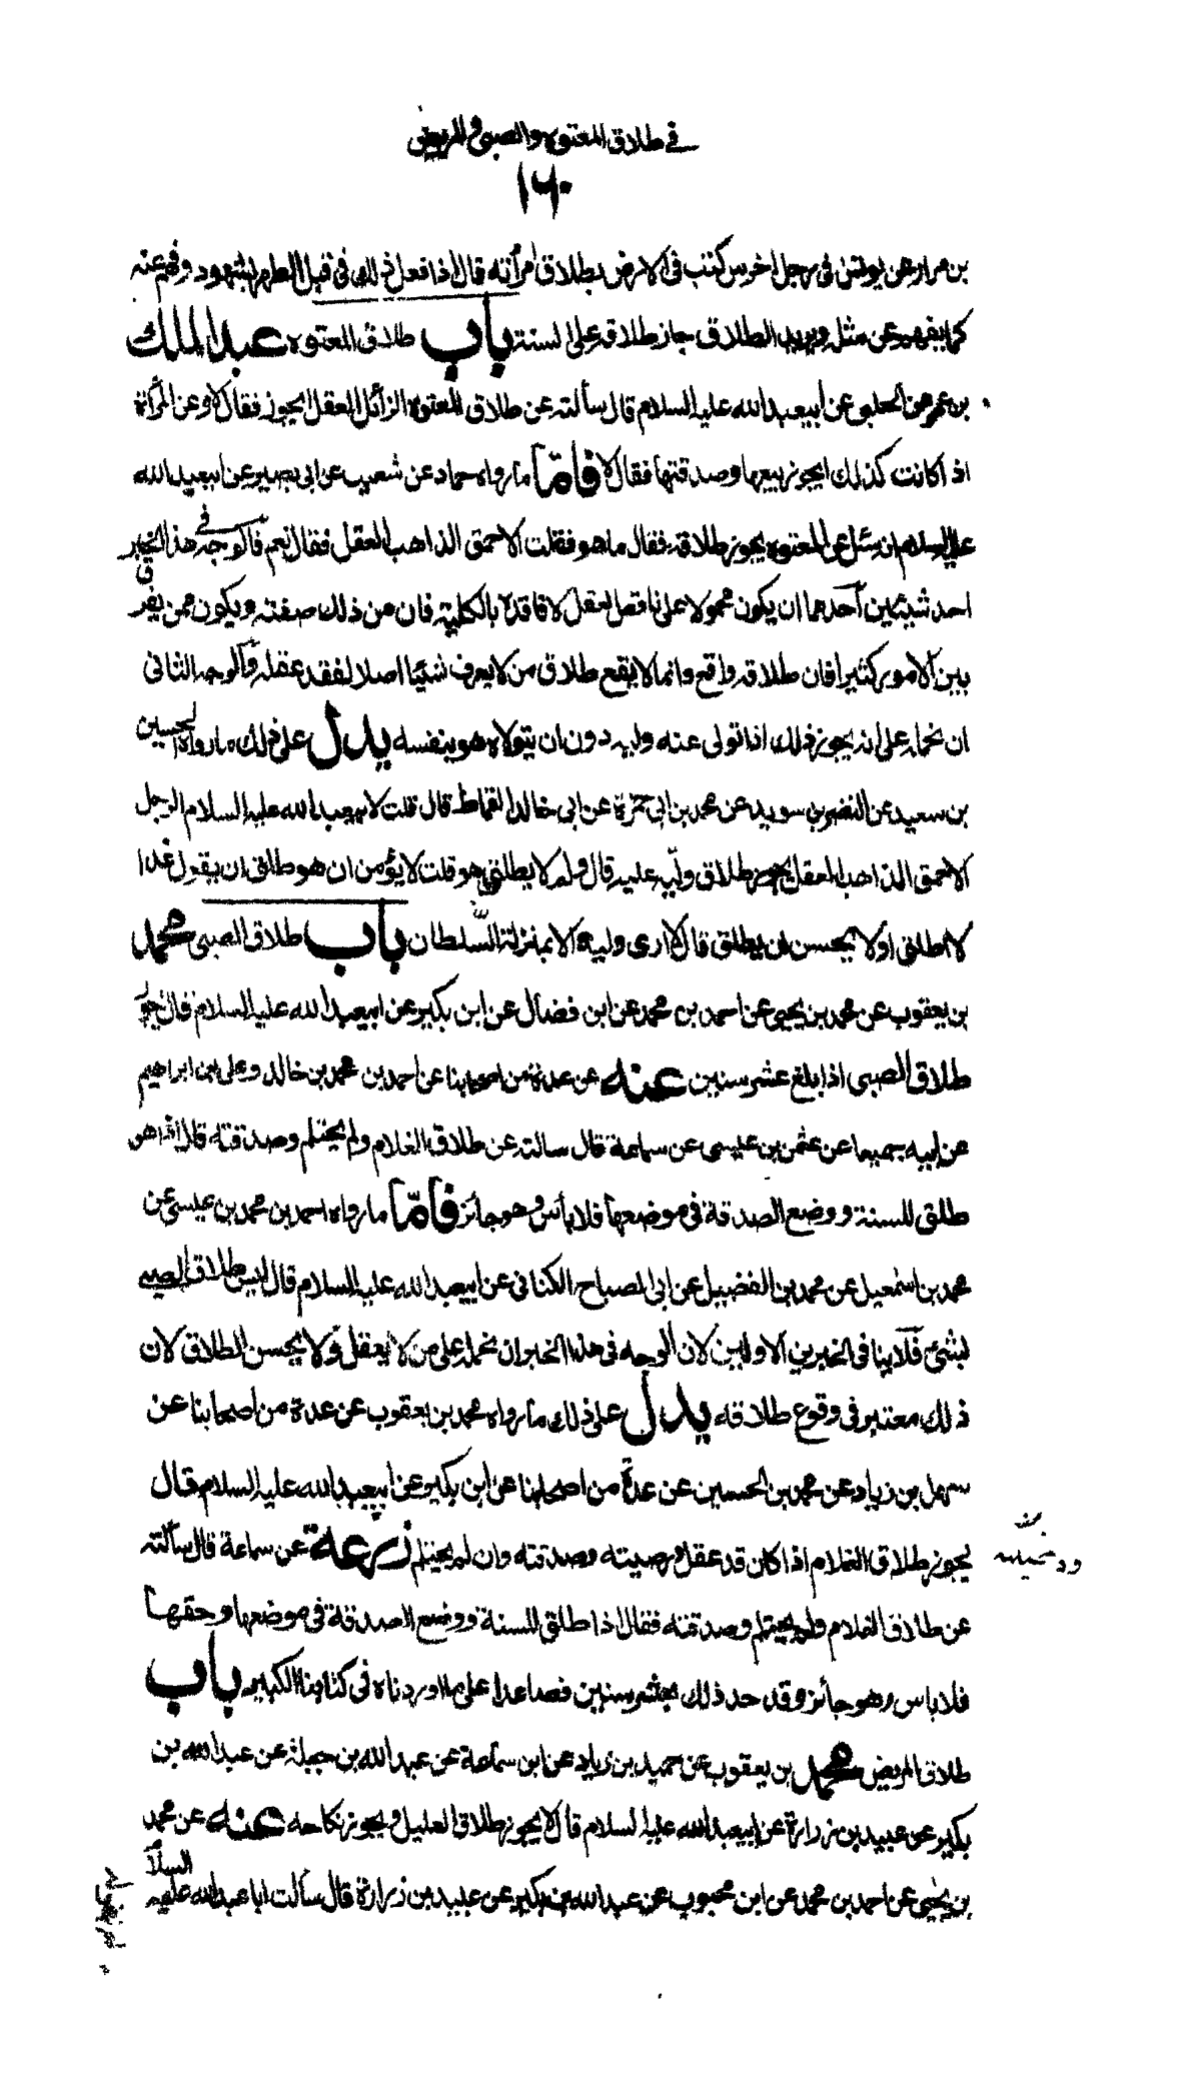 في طلاق المعتوه والصبي والمريض
١٦٠
بن مرار عن يونس في رجل اخرس كتب في الارض بطلاق امرأته قال اذا فعل ذلك في قبل الطهر بشهود وفهم عنه
كما يفهم عن مثله ويريد الطلاق جاز طلاقه على السنة باب طلاق المعتوه عبد الملك
بن عمرو عن الحلبي عن ابيعبد الله عليه السلام قال سألته عن طلاق المعتوه الزائل العقل ايجوز فقال لا وعن المرأة
اذا كانت كذلك ايجوز بيعها وصدقتها فقال لا فامّا ما رواه حماد عن شعيب عن ابي بصير عن ابيعبد الله
عليه السلام انه سئل عن المعتوه يجوز طلاقه فقال ما هو فقلت الاحمق الذاهب العقل فقال نعم فالوجه في هذا الخبر
احد شيئين احدهما ان يكون محمولا على ناقص العقل لا فاقده بالكلية فان من ذلك صفته ويكون ممن يفرق
بين الامور كثيرا فان طلاقه واقع وانما لا يقع طلاق من لا يعرف شيئا اصلا لفقد عقله والوجه الثاني
ان نحمله على انه يجوز ذلك اذا تولى عنه وليه دون ان يتولاه هو بنفسه يدل على ذلك ما رواه الحسين
بن سعيد عن النضر بن سويد عن محمد بن ابي حمزة عن ابي خالد القماط قال قلت لابيعبد الله عليه السلام الرجل
الاحمق الذاهب العقل يجوز طلاق وليّه عليه قال ولم لا يطلق هو قلت لا يؤمن ان هو طلق ان يقول غدا
لم اطلق او لا يحسن ان يطلق قال لا ارى وليه الا بمنزلة السلطان باب طلاق الصبي محمد
بن يعقوب عن محمد بن يحيى عن احمد بن محمد عن ابن فضال عن ابن بكير عن ابيعبد الله عليه السلام قال يجوز
طلاق الصبي اذا بلغ عشر سنين عنه عن عدة من اصحابنا عن احمد بن محمد بن خالد وعلي بن ابراهيم
عن ابيه جميعا عن عثمن بن عيسى عن سماعة قال سالته عن طلاق الغلام ولم يحتلم وصدقته قال اذا هو
طلق للسنة ووضع الصدقة في موضعها فلا بأس وهو جائز فامّا ما رواه احمد بن محمد بن عيسى عن
محمد بن اسمعيل عن محمد بن الفضيل عن ابي الصباح الكناني عن ابيعبد الله عليه السلام قال ليس طلاق الصبي
بشئ فلا ينافي الخبرين الاولين لان الوجه في هذا الخبر ان نحمله على من لا يعقل ولا يحسن الطلاق لان
ذلك معتبر في وقوع طلاقه يدل على ذلك ما رواه محمد بن يعقوب عن عدة من اصحابنا عن
سهل بن زياد عن محمد بن الحسين عن عدة من اصحابنا عن ابن بكير عن ابيعبد الله عليه السلام قال
يجوز طلاق الغلام اذا كان قد عقل ووصيته وصدقته وان لم يحتلم زرعة عن سماعة قال سألته
عن طلاق الغلام ولم يحتلم وصدقته فقال اذا طلق للسنة ووضع الصدقة في موضعها وحقها
فلا باس وهو جائز وقد حد ذلك بعشر سنين فصاعدا على ما اوردناه في كتابنا الكبير باب
طلاق المريض محمد بن يعقوب عن حميد بن زياد عن ابن سماعة عن عبد الله بن جبلة عن عبد الله بن
بكير عن عبيد بن زرارة عن ابيعبد الله عليه السلام قال لا يجوز طلاق العليل ويجوز نكاحه عنه عن محمد
بن يحيى عن احمد بن محمد عن ابن محبوب عن عبد الله بن بكير عن عبيد بن زرارة قال سألت ابا عبد الله عليه السلام